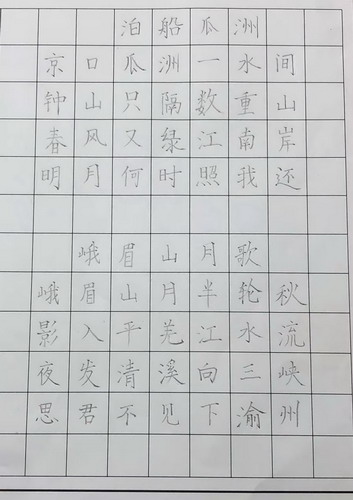 泊船瓜洲
京口瓜洲一水间
钟山只隔数重山
春风又绿江南岸
明月何时照我还
峨眉山月歌
峨眉山月半轮秋
影入平羌江水流
夜发清溪向三峡
思君不见下渝州